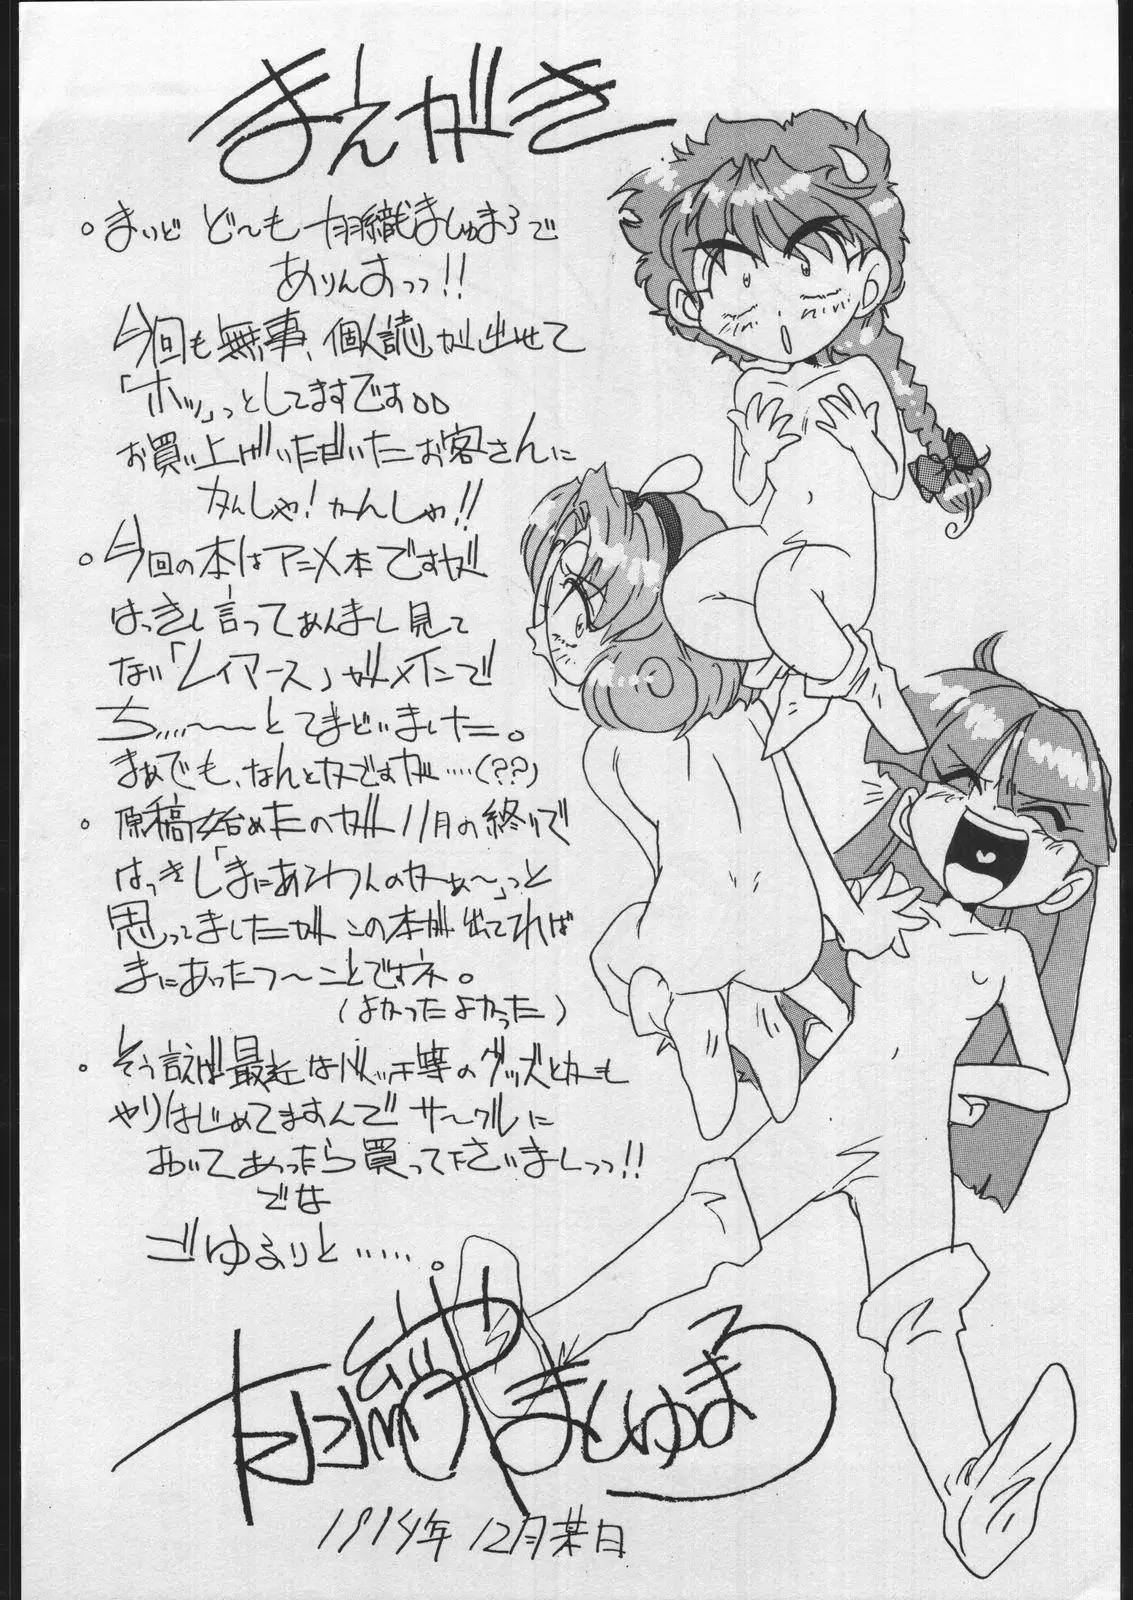 まえがき
。まいど ど〜も 羽織ましゅまろで
ありんすっっ!!
今回も無事、個人誌が出せて
「ホッ」っとしてますです。。
お買い上げいただいたお客さんに
かんしゃ!かんしゃ!!
。今回の本はアニメ本ですが
はっきし言ってあんまし見て
ない「レイアース」がメインで
ち、、、〜〜とてまどいました。
まぁでも、なんとかですが・・・・(??)
。原稿始めたのが11月の終りで
はっきし「まにあてわんのかぁ〜」っと
思ってましたがこの本が出てれば
まにあったつ〜ことですネ。
(よかったよかった)
。そう言えば最近はバッチ等のグッズとかも
やりはじめてますんでサークルに
おいてあったら買って下さいましっっ!!
でわ
ごゆるりと・・・・・。
羽織ましゅまろ
1994年 12月某日